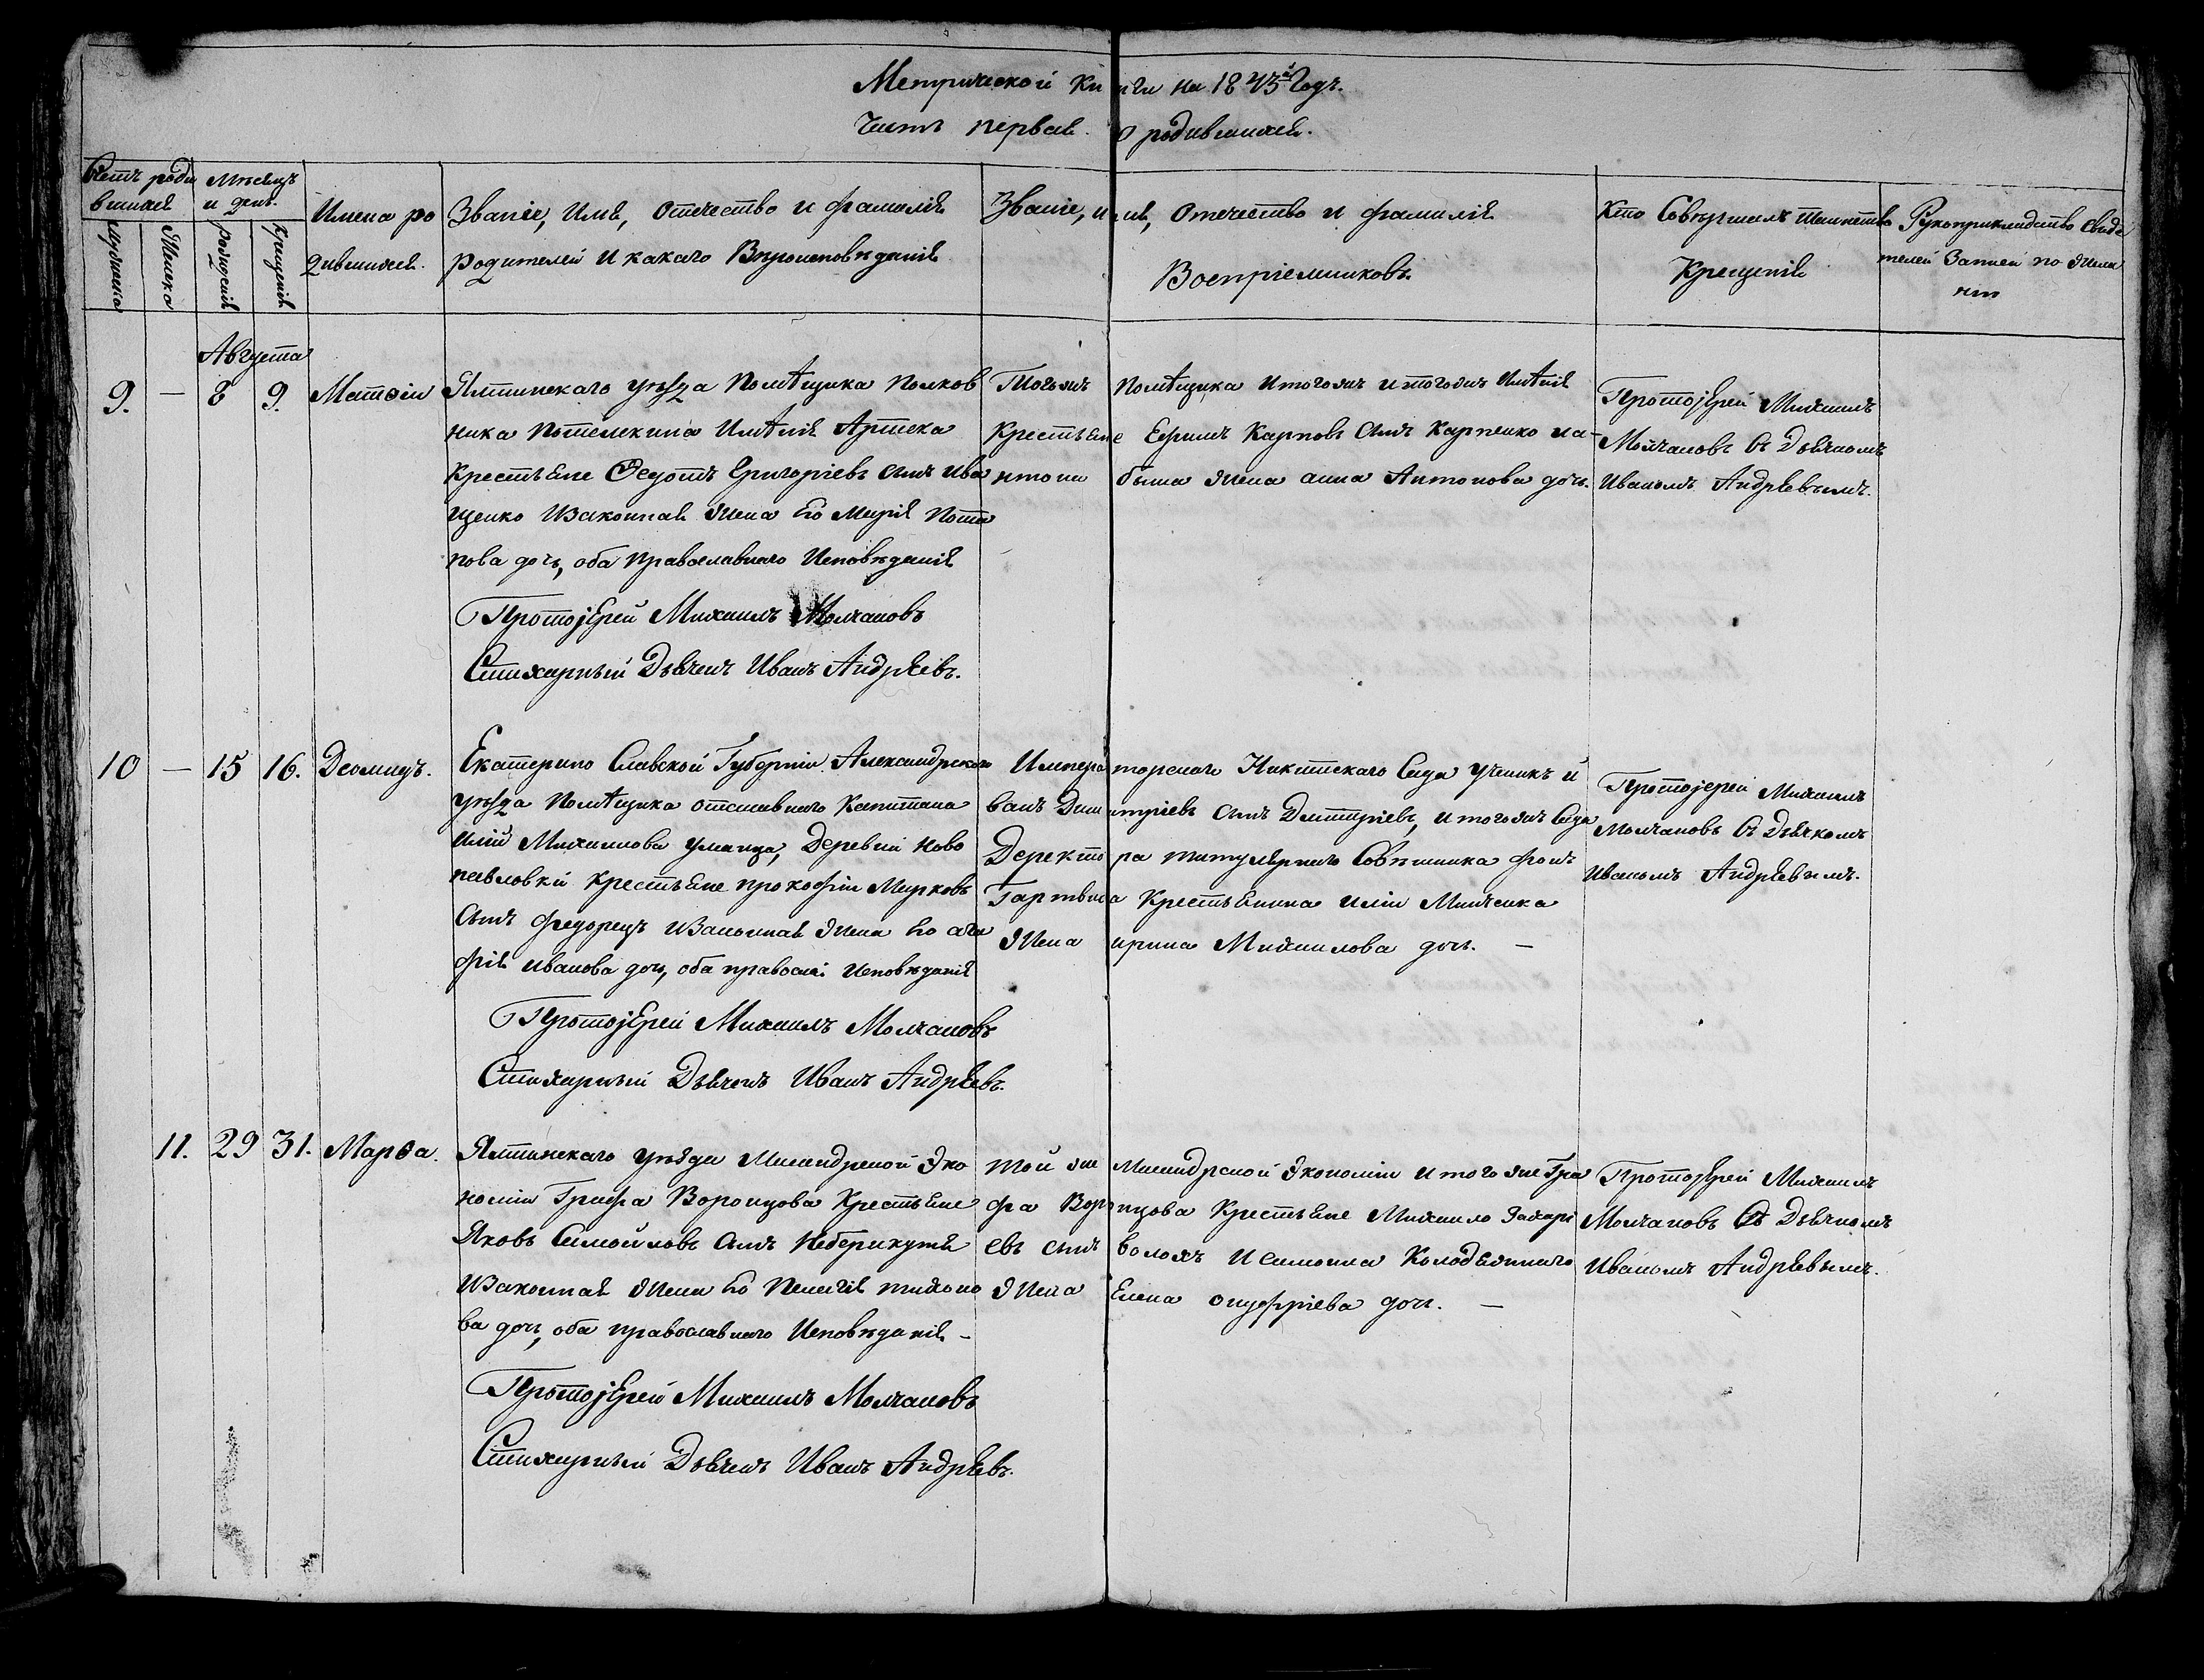 Метрической книги на 1843й Годъ.
Часть первая. О родившихся.
Счетъ роди
вшихся
Мужеска
Женска
Мѣсяцъ
и день.
рожденія
крещенія
Имена ро
дившихся.
Званіе, Имя, Отечество и фамилія
родителей и какаго Вѣроисповѣданія
Званіе, имя, Отечество и фамилія
Воспріемниковъ.
Кто Совершалъ таинство
Крещенія
Рукоприкладство свидѣ
телей Записи по жела
нію
Августа
9. — 8 9. Матфій
Ялтинскаго уѣзда Помѣщика Полков
ника Потемкина Имѣнія Артека
Крестьяне Федотъ Григоріевъ сынъ Ива
щенко Изаконная жена его Марія Пота
пова дочь, оба православнаго Исповѣданія
Протоіерей Михаилъ Молчановъ
Стихарный Дьячекъ Иванъ Андрѣевъ.
Тогожъ Помѣщика итогожъ Имѣнія
Крестьяне Ефимъ Карповъ сынъ Карпенко
жена анна Антонова дочь.
Протоіерей Михаилъ
Молчановъ съ Дьячкомъ
Иваномъ Андрѣевымъ.
10 — 15 16. Деомидъ.
Екатерино Славской Губерніи Александрскаго
уѣзда Помѣщика отставнаго Капитана
Иліи Михаилова Уманца, Деревни Ново
павловки Крестьяне прокофій Марковъ
Сынъ Федорецъ Изаконная жена его ага
фія иванова дочь, оба правосла: исповѣданія
Протоіерей Михаилъ Молчановъ
Стихарный Дьячекъ Иванъ Андрѣевъ.
Императорскаго Никитскаго Сада ученикъ и
ванъ Дмитріевъ сынъ Дмитріевъ, итогожъ Сада
Деректора титулярнаго Совѣтника фонъ
Гартвиса Крестьянина Иліи
жена ирина Михаилова дочь. —
Протоіерей Михаилъ
Молчановъ съ Дьячкомъ
Иваномъ Андрѣевымъ.
11. 29 31. Марѳа.
Ялтинскаго уѣзда Мисандрской Эко
номіи Графа Воронцова Крестьяне
Яковъ Самойловъ сынъ
Изаконная жена его Пелагія тихоно
ва дочь, оба православнаго Исповѣданія —
Протоіерей Михаилъ Молчановъ
Стихарный Дьячекъ Иванъ Андрѣевъ.
той же Мисандрской Экономіи итого же Гра
фа Воронцова Крестьяне Михаило Захарі
евъ сынъ воложъ И симона Колодяжнаго
жена Елена онуфріева дочь. —
Протоіерей Михаилъ
Молчановъ съ Дьячкомъ
Иваномъ Андрѣевымъ.